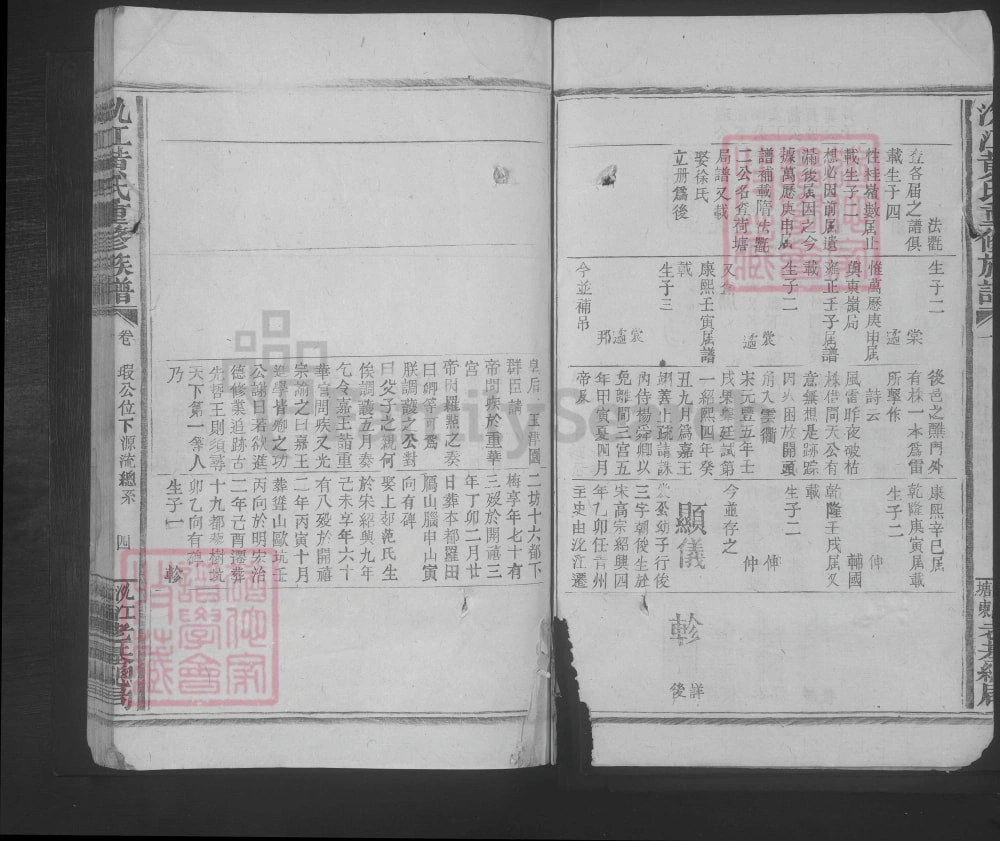 法㲲
查各屆之譜俱
載生子四
性桂嶺數屆止
載生子二
想必因前屆遺
滿後屆因之今
據萬歷庚申屆
譜補載隋
二公名查荷塘
局譜又載
娶徐氏
立冊爲後
生子二
棠
遙
惟萬歷庚申屆
與東嶺局
雍正壬子屆譜
載
生子二
裳
遙
又查
康熙壬寅屆譜
載
生子三
裳
遙
邦
今並補吊
後邑之醮門外
有株一本爲雷
所擊作
詩云
風雷昨夜破枯
株借問天公有
意無想是踪跡
因
困放開頭
角入雲衢
宋元豐五年壬
戌舉興廷試第
一紹熙四年癸
丑九月爲嘉王
翊善上疏請誅
內侍楊舜卿以
免離間三宮五
年甲寅夏四月
帝及
康熙辛巳屆
乾隆庚寅屆載
生子二
伸
輔國
乾隆壬戌屆又
載
生子二
伸
仲
今並存之
裳公幼子行後
三字朝俊生於
宋高宗紹興四
年乙卯任青州
主吏由沇江遷
顯儀
軫
詳
後
沇江黃氏重修族譜
塘東
老基總局
皇后
玉津園
群臣請
帝問疾於重華
宮
帝因羅點之奏
曰卿等可爲
朕調護之公對
曰父子之親何
俟調護五月奏
乞令嘉王詣重
華宮問疾又光
宗諭之曰嘉王
進學皆卿之功
公謝曰若欲進
德修業追跡古
先哲王則須尋
天下第一等人
乃
二坊十六都下
梅亭年七十有
三歿於開禧三
年丁卯二月廿
日葬本都羅田
屬山臘申山寅
向有碑
娶上都范氏生
於宋紹興九年
己未享年六十
有八歿於開禧
二年丙寅十月
葬聳山歐坑壬
丙向於明宏治
二年己酉遷葬
十九都
樹坑
卯乙向有碑
生子一
軫
沇江黃氏重修族譜
卷
瑕公位下源流總系
四
沇江老基總局